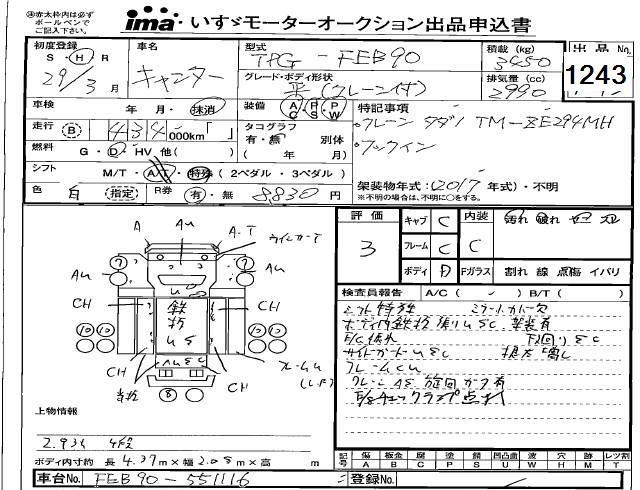 ㊟赤太枠内は必ず
ボールペンで
ご記入下さい。
ima いすゞモーターオークション出品申込書
初度登録
S・H・R
29/3月
車名
キャンター
型式
TPG-FEB90
積載(kg)
3450
出品No.
1243
グレード・ボディ形状
平(クレーン付)
排気量(cc)
2990
車検
年 月・抹消
装備
AC PS PW
特記事項
・クレーン タダノ TM-ZE294MH
・フックイン
走行
B 434 000km「 」
タコグラフ
有・無 別体
( 年 月)
燃料
G・D・HV 他( )
シフト
M/T・A/T・特殊 (2ペダル・3ペダル)
架装物年式:(2017年式)・不明
※不明の場合は、不明に○をする。
色
白 指定
R券
有・無 8,830円
評価
3
キャブ C
フレーム C
ボディ D
内装
C
汚れ 破れ セコ スレ
Fガラス
割れ 線 点傷 イバリ
A
Au
A・T
ウインカーT
Au
7
7
CH
CH
鉄板
US
10 10
10 10
CH
AUSC
CH
フレームU
B
検査員報告
A/C( )B/T( )
シフト特殊
ミラートカバー欠
ボディ内鉄板張りUSC
架装有
下廻りSC
サイドガードUSC
フレームCU
クレーンAS 旋回ガタ有
E/gチェックランプ点灯
上物情報
2.93t 4段
ボディ内寸約 長4.37m×幅2.08m×高 m
記号
傷 A
板金 B
腐 C
塗 P
錆 S
凹凸曲 U
波 W
穴 H
跡 M
欠 T
レツ割
車台No.
FEB90-551116
登録No.